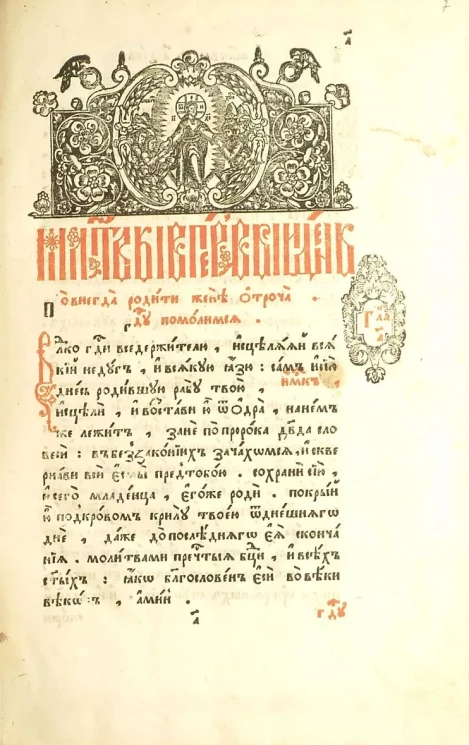 а҃
7
мл҃твы в пе́рвыи де́нь
повнегда̀ роди́ти женѣ̀ ѻ҆троча̀ .
гдⷭ҇у помо́лимсѧ .
Гла
а҃
Влⷣко гдⷭ҇и вседержи́телю , и҆сцѣлѧ́ѧй всѧ́
кїй неду́гъ , и҆всѧ́кую ꙗ҆́зю : са́мъ и҆сїю̀
дне́сь роди́вшую рабу̀ твою̀ , и҆́мкъ ,
и҆сцѣлѝ , и҆воста́ви ю҆̀ ѿ ѻ҆дра̀ , нане́мъ
же лежи́тъ , занѐ по прⷪ҇ро́ка дв҃да сло
весѝ : въбеззако́нїихъ зача́хомсѧ , и҆сквє
рна́ви всѝ є҆смы̀ предтобо́ю . сохранѝ сїю̀ ,
и҆сего̀ младе́нца , є҆го́же родѝ . покры́й
ю҆̀ подкро́вомъ крилу̀ твоє́ю ѿдне́шнѧгѡ
днѐ , да́же допослѣ́днѧгѡ є҆ѧ̀ сконча́
нїѧ . моли́твами пречⷭ҇тыѧ бц҃ы , и҆всѣ́хъ
ст҃ы́хъ : ꙗ҆́кѡ благослове́нъ є҆сѝ вовѣ́ки
вѣкѡ́въ , а҆ми́нь .
а҃
гдⷭ҇у